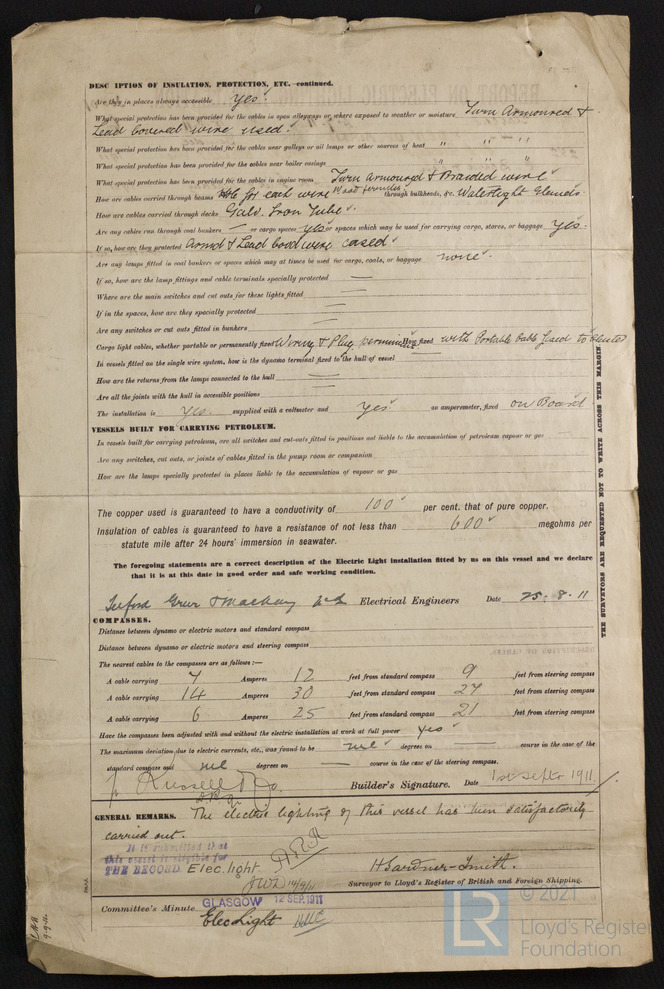 DESC IPTION OF INSULATION, PROTECTION, ETC.—continued.
Are they in places always accessible Yes
What special protection has been provided for the cables in open alleyways or where exposed to weather or moisture Turn Armoured &
Lead Covered wire used.
What special protection has been provided for the cables near galleys or oil lamps or other sources of heat " " "
What special protection has been provided for the cables near boiler casings " " "
What special protection has been provided for the cables in engine room Turn Armoured & Braided wire
How are cables carried through beams Hole for each wire Wood ferrules through bulkheads, &c. Watertight Glands.
How are cables carried through decks Galvd. Iron Tube.
Are any cables run through coal bunkers — or cargo spaces yes or spaces which may be used for carrying cargo, stores, or baggage yes.
If so, how are they protected Armd & Lead Covd wire cased
Are any lamps fitted in coal bunkers or spaces which may at times be used for cargo, coals, or baggage none.
If so, how are the lamp fittings and cable terminals specially protected —
Where are the main switches and cut outs for these lights fitted —
If in the spaces, how are they specially protected —
Are any switches or cut outs fitted in bunkers —
Cargo light cables, whether portable or permanently fixed Wiring & Plug permanent How fixed with Portable Cable fixed to
In vessels fitted on the single wire system, how is the dynamo terminal fixed to the hull of vessel —
How are the returns from the lamps connected to the hull —
Are all the joints with the hull in accessible positions —
The installation is yes. supplied with a voltmeter and yes an amperemeter, fixed on Board
VESSELS BUILT FOR CARRYING PETROLEUM.
In vessels built for carrying petroleum, are all switches and cut-outs fitted in positions not liable to the accumulation of petroleum vapour or gas
Are any switches, cut outs, or joints of cables fitted in the pump room or companion
How are the lamps specially protected in places liable to the accumulation of vapour or gas
The copper used is guaranteed to have a conductivity of 100 per cent. that of pure copper.
Insulation of cables is guaranteed to have a resistance of not less than 600 megohms per
statute mile after 24 hours' immersion in seawater.
The foregoing statements are a correct description of the Electric Light installation fitted by us on this vessel and we declare
that it is at this date in good order and safe working condition.
Telford Grier & Mackay Ld Electrical Engineers Date 25.8.11
COMPASSES.
Distance between dynamo or electric motors and standard compass
Distance between dynamo or electric motors and steering compass
The nearest cables to the compasses are as follows:—
A cable carrying 7 Amperes 12 feet from standard compass 9 feet from steering compass
A cable carrying 14 Amperes 30 feet from standard compass 27 feet from steering compass
A cable carrying 6 Amperes 25 feet from standard compass 21 feet from steering compass
Have the compasses been adjusted with and without the electric installation at work at full power yes
The maximum deviation due to electric currents, etc., was found to be nil degrees on — course in the case of the
standard compass and nil degrees on — course in the case of the steering compass.
p. Russell & Co. Builder's Signature. Date 1st Septr 1911.
GENERAL REMARKS. The electric lighting of this vessel has been satisfactorily
carried out.
It is submitted that
this vessel is eligible for
THE RECORD Elec. light
JWD 14/9/11
H Gardner-Smith.
Surveyor to Lloyd's Register of British and Foreign Shipping.
GLASGOW 12 SEP. 1911
Committee's Minute
Elec Light
THE SURVEYORS ARE REQUESTED NOT TO WRITE ACROSS THIS MARGIN.
© 2021
LR
Lloyd's Register
Foundation